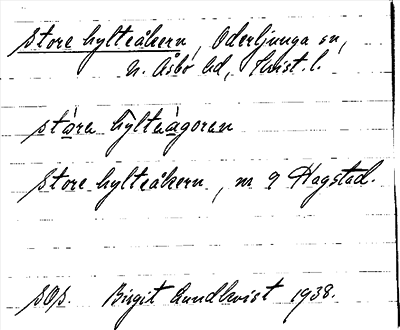 Store hylteåkern, Oderljunga sn,
N. Åsbo hd, Krist. l.
stóra hỳlteàgoran
Store hylteåkern, m 9 Hagstad.
sOp. Birgit Lundkvist 1938.